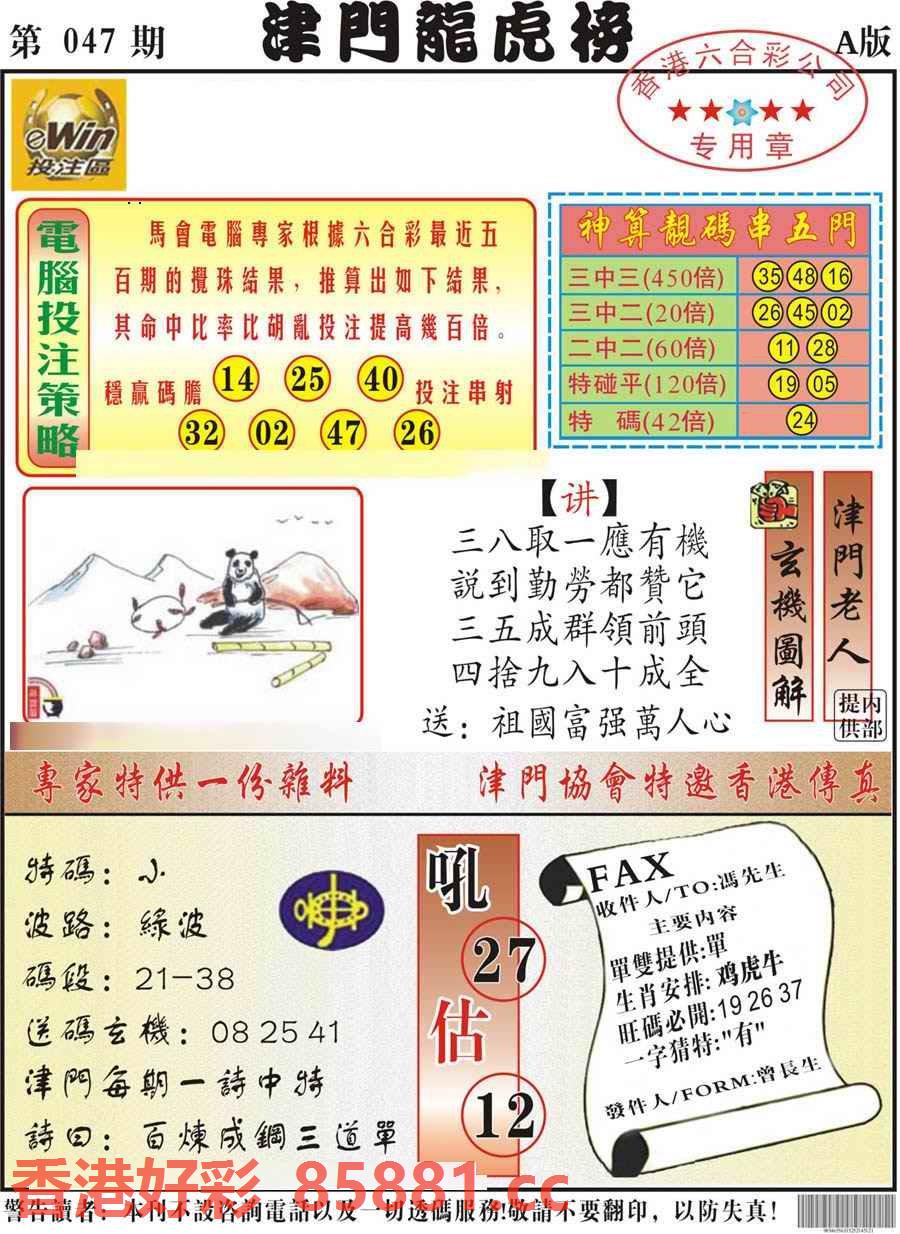 第 047 期
津門龍虎榜
A版
香港六合彩公司
专用章
eWin
投注區
電腦投注策略
馬會電腦專家根據六合彩最近五
百期的攪珠結果，推算出如下結果，
其命中比率比胡亂投注提高幾百倍。
穩贏碼膽 14 25 40 投注串射
32 02 47 26
神算靚碼串五門
三中三(450倍) 35 48 16
三中二(20倍) 26 45 02
二中二(60倍) 11 28
特碰平(120倍) 19 05
特 碼(42倍) 24
【讲】
三八取一應有機
説到勤勞都贊它
三五成群領前頭
四捨九入十成全
送：祖國富强萬人心
玄機圖解
津門老人
内部提供
專家特供一份雜料
津門協會特邀香港傳真
特碼：小
波路：綠波
碼段：21-38
送碼玄機：08 25 41
津門每期一詩中特
詩曰：百煉成鋼三道單
吼
27
估
12
FAX
收件人/TO:馮先生
主要内容
單雙提供:單
生肖安排:鸡虎牛
旺碼必開:19 26 37
一字猜特:"有"
發件人/FORM:曾長生
香港好彩 85881.cc
警告讀者：本刊不設咨詢電話以及一切透碼服務!敬請不要翻印，以防失真!